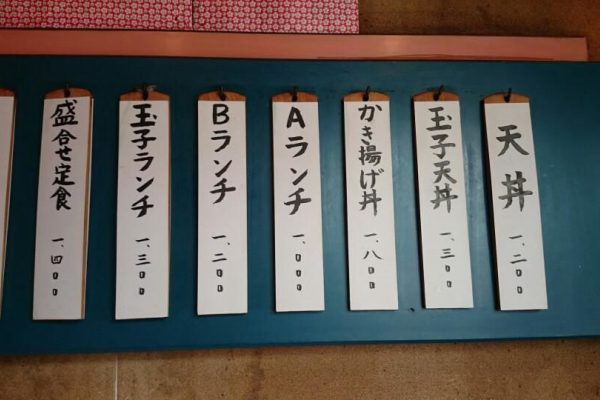 天丼 一、二〇〇
玉子天丼 一、三〇〇
かき揚げ丼 一、八〇〇
Aランチ 一、〇〇〇
Bランチ 一、二〇〇
玉子ランチ 一、三〇〇
盛合せ定食 一、四〇〇